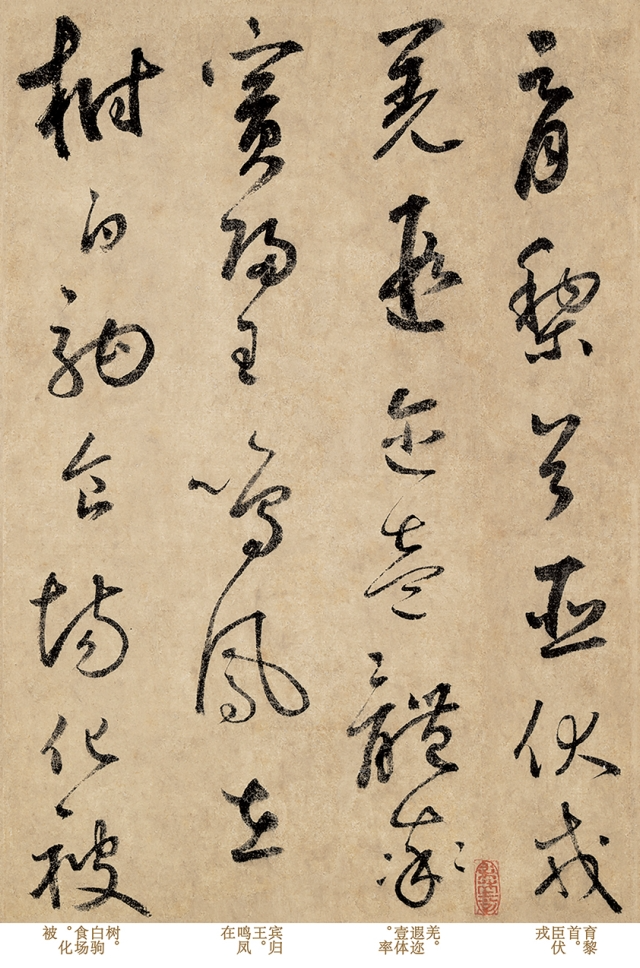 育黎首臣伏戎
羌遐迩壹體率
賓歸王鳴鳳在
樹白駒食場化被
育黎首。臣伏戎
羌。遐迩壹体。率
宾归王。鸣凤在
树。白驹食场。化被